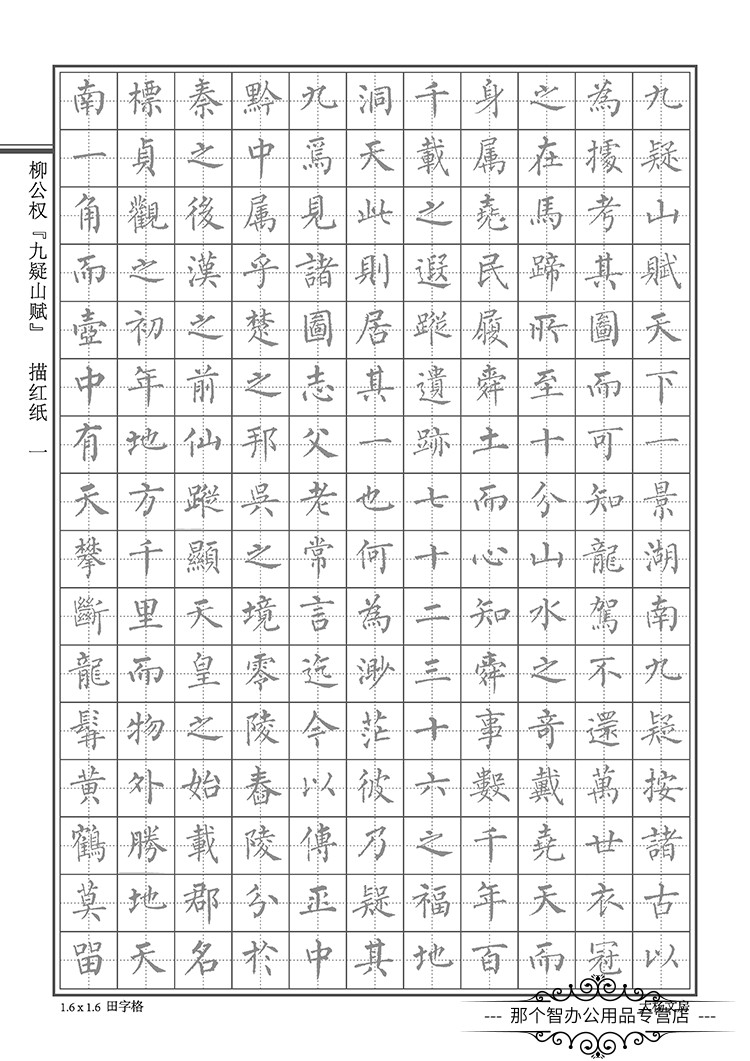 九疑山賦天下一景湖南九疑按諸古以
為據考其圖而可知龍駕不還萬世衣冠
之在馬蹄所至十分山水之奇戴堯天而
身属堯民履舜土而心知舜事數千年百
千載之遐蹤遺跡七十二三十六之福地
洞天此則居其一也何為渺茫彼乃疑其
九焉見諸圖志父老常言迄今以傳正中
黔中属乎楚之邦吳之境零陵舂陵分於
秦之後漢之前仙蹤顯天皇之始載郡名
標貞觀之初年地方千里而物外勝地天
南一角而壺中有天攀斷龍髯黃鶴莫留
柳公权『九疑山赋』 描红纸 一
1.6 x 1.6 田字格
--- 那个智办公用品专营店 ---